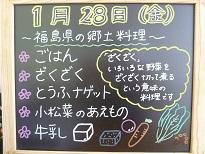 1月28日(金)
～福島県の郷土料理～
ごはん
ざくざく
とうふナゲット
小松菜のあえもの
牛乳
ざくざく、
いろいろな野菜を
ざくざく切って煮る
という意味の
料理です